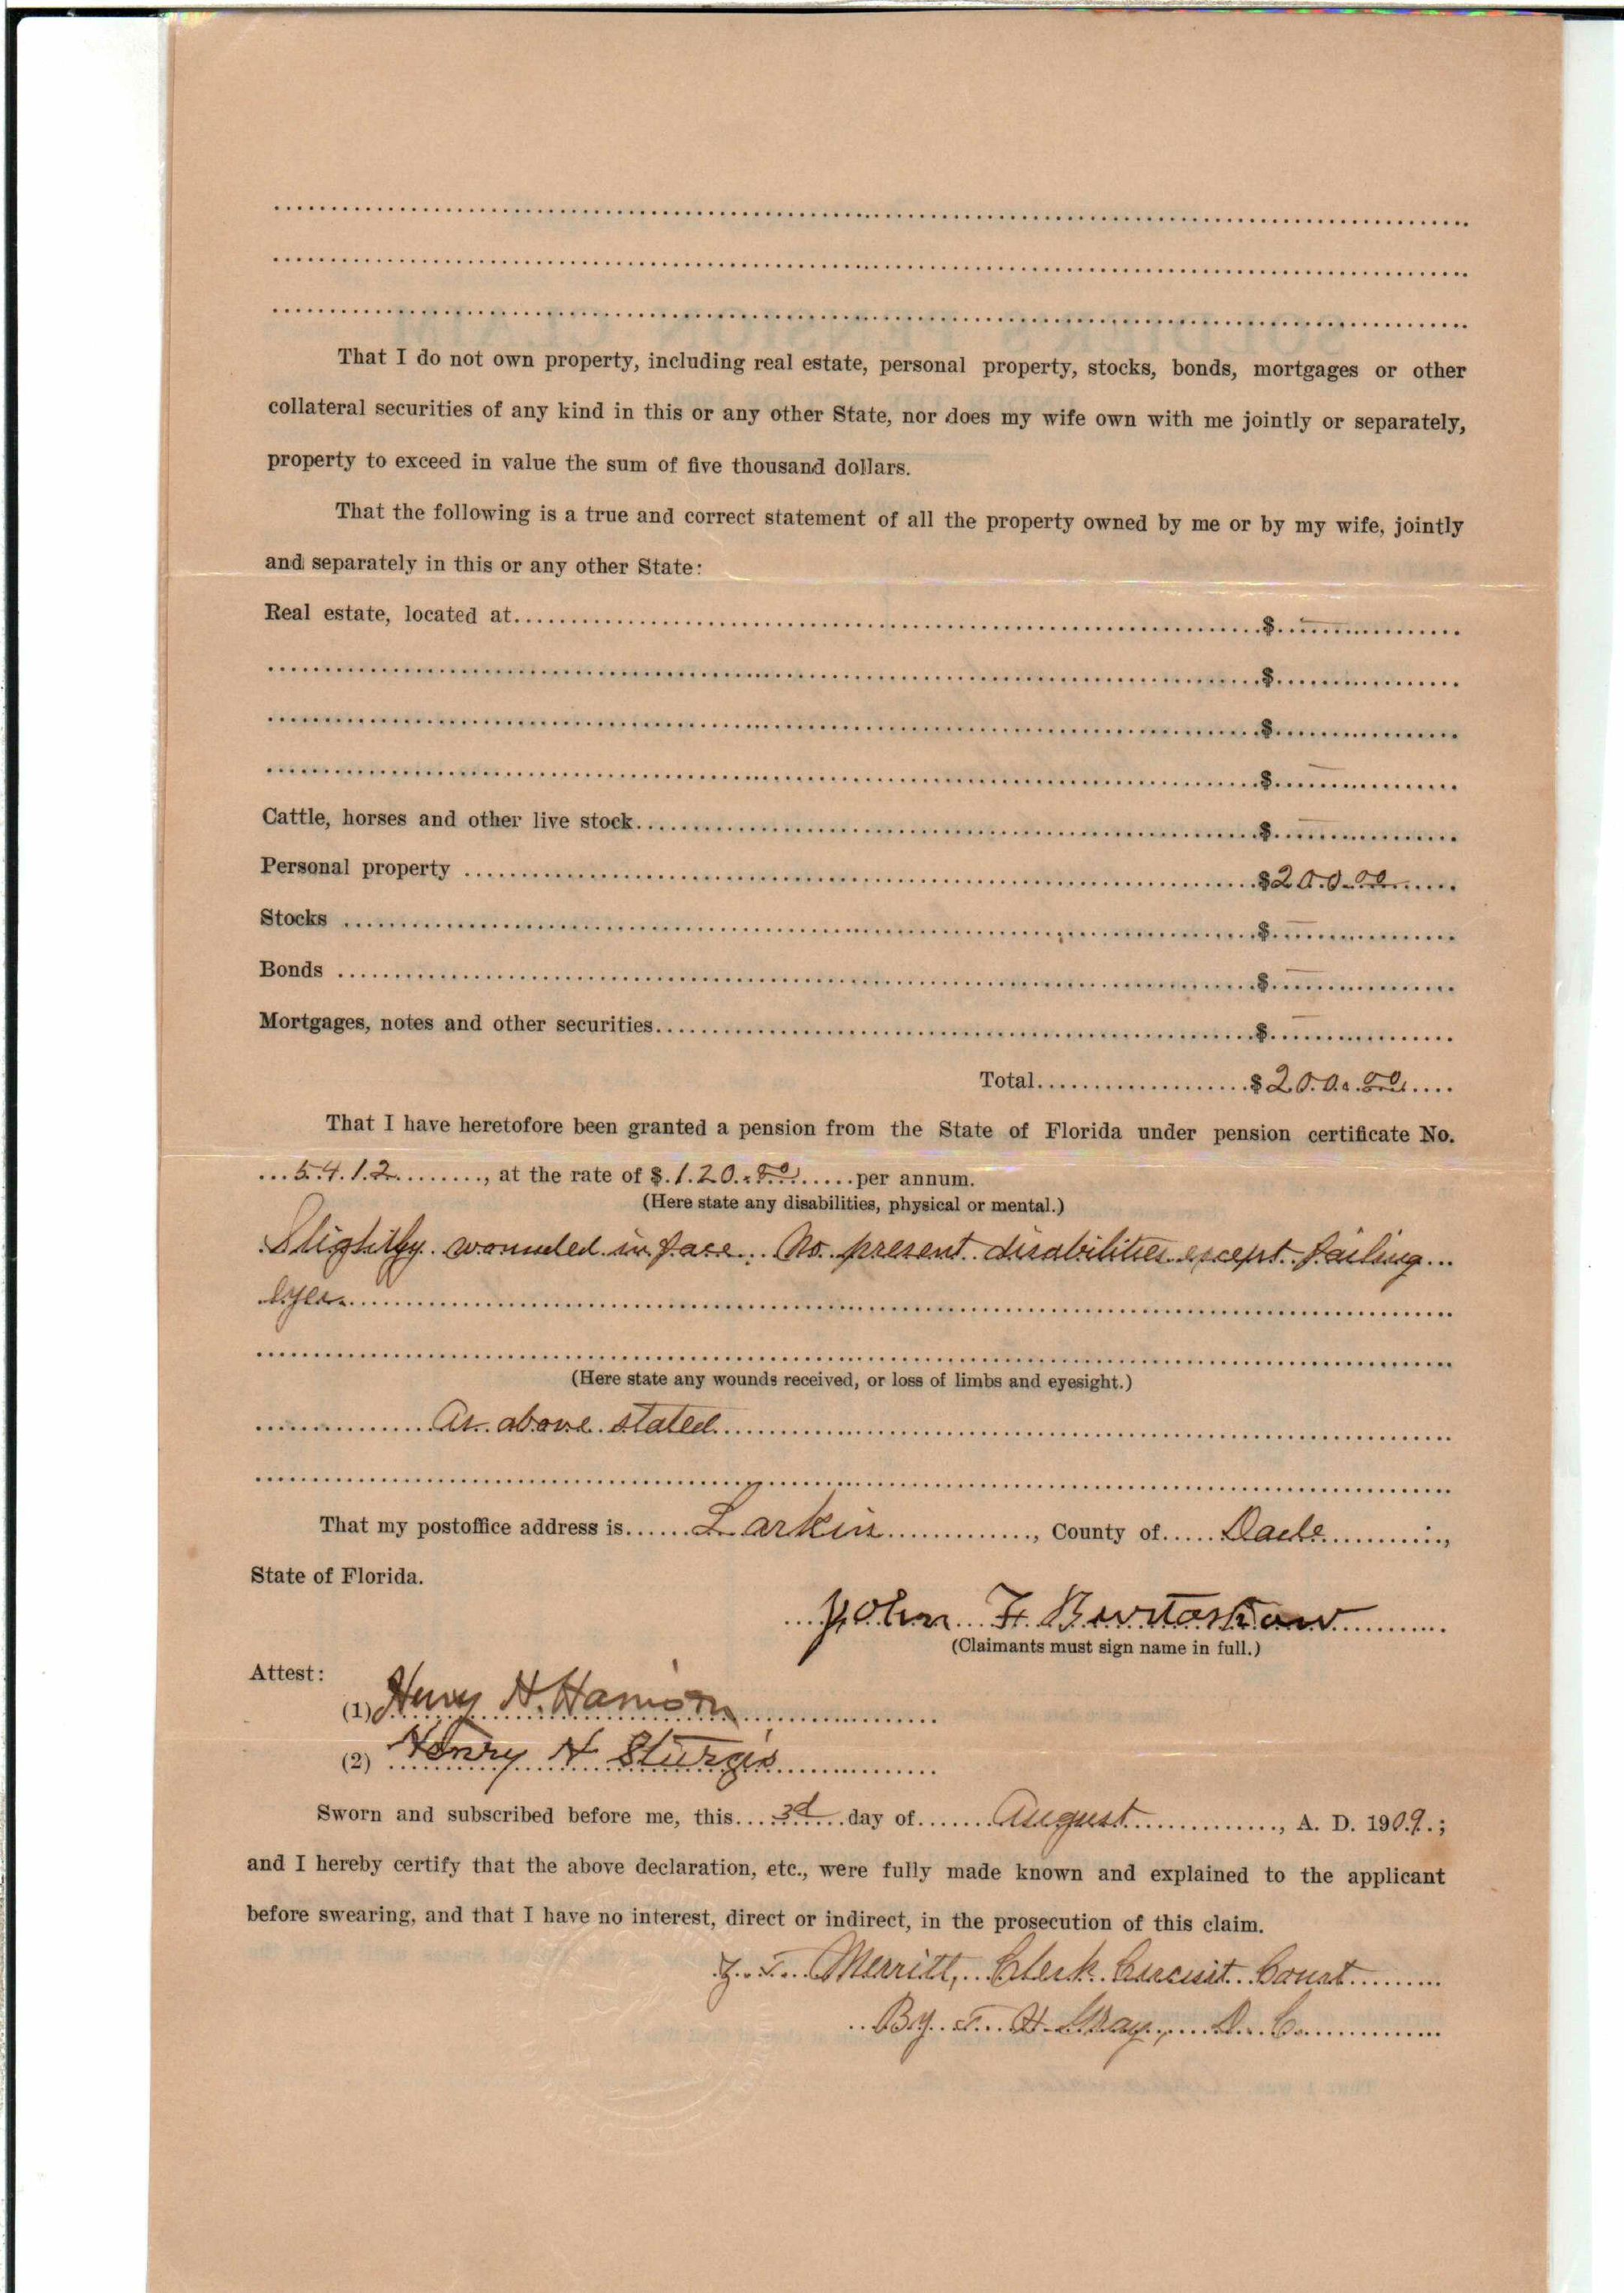 That I do not own property, including real estate, personal property, stocks, bonds, mortgages or other
collateral securities of any kind in this or any other State, nor does my wife own with me jointly or separately,
property to exceed in value the sum of five thousand dollars.
That the following is a true and correct statement of all the property owned by me or by my wife, jointly
and separately in this or any other State:
Real estate, located at $ —
$
$
$ —
Cattle, horses and other live stock $ —
Personal property $200.00
Stocks $ —
Bonds $ —
Mortgages, notes and other securities $ —
Total $200.00
That I have heretofore been granted a pension from the State of Florida under pension certificate No.
5412, at the rate of $120.00 per annum.
(Here state any disabilities, physical or mental.)
Slightly wounded in face. No present disabilities except failing
eyes.
(Here state any wounds received, or loss of limbs and eyesight.)
As above stated
That my postoffice address is Larkin, County of Dade,
State of Florida.
John F.
(Claimants must sign name in full.)
Attest:
(1) Henry H. Harrison
(2) Henry H Sturgis
Sworn and subscribed before me, this 3d day of August, A. D. 1909.;
and I hereby certify that the above declaration, etc., were fully made known and explained to the applicant
before swearing, and that I have no interest, direct or indirect, in the prosecution of this claim.
Z. T. Merritt, Clerk Circuit Court
By T. H. Gray, D. C.